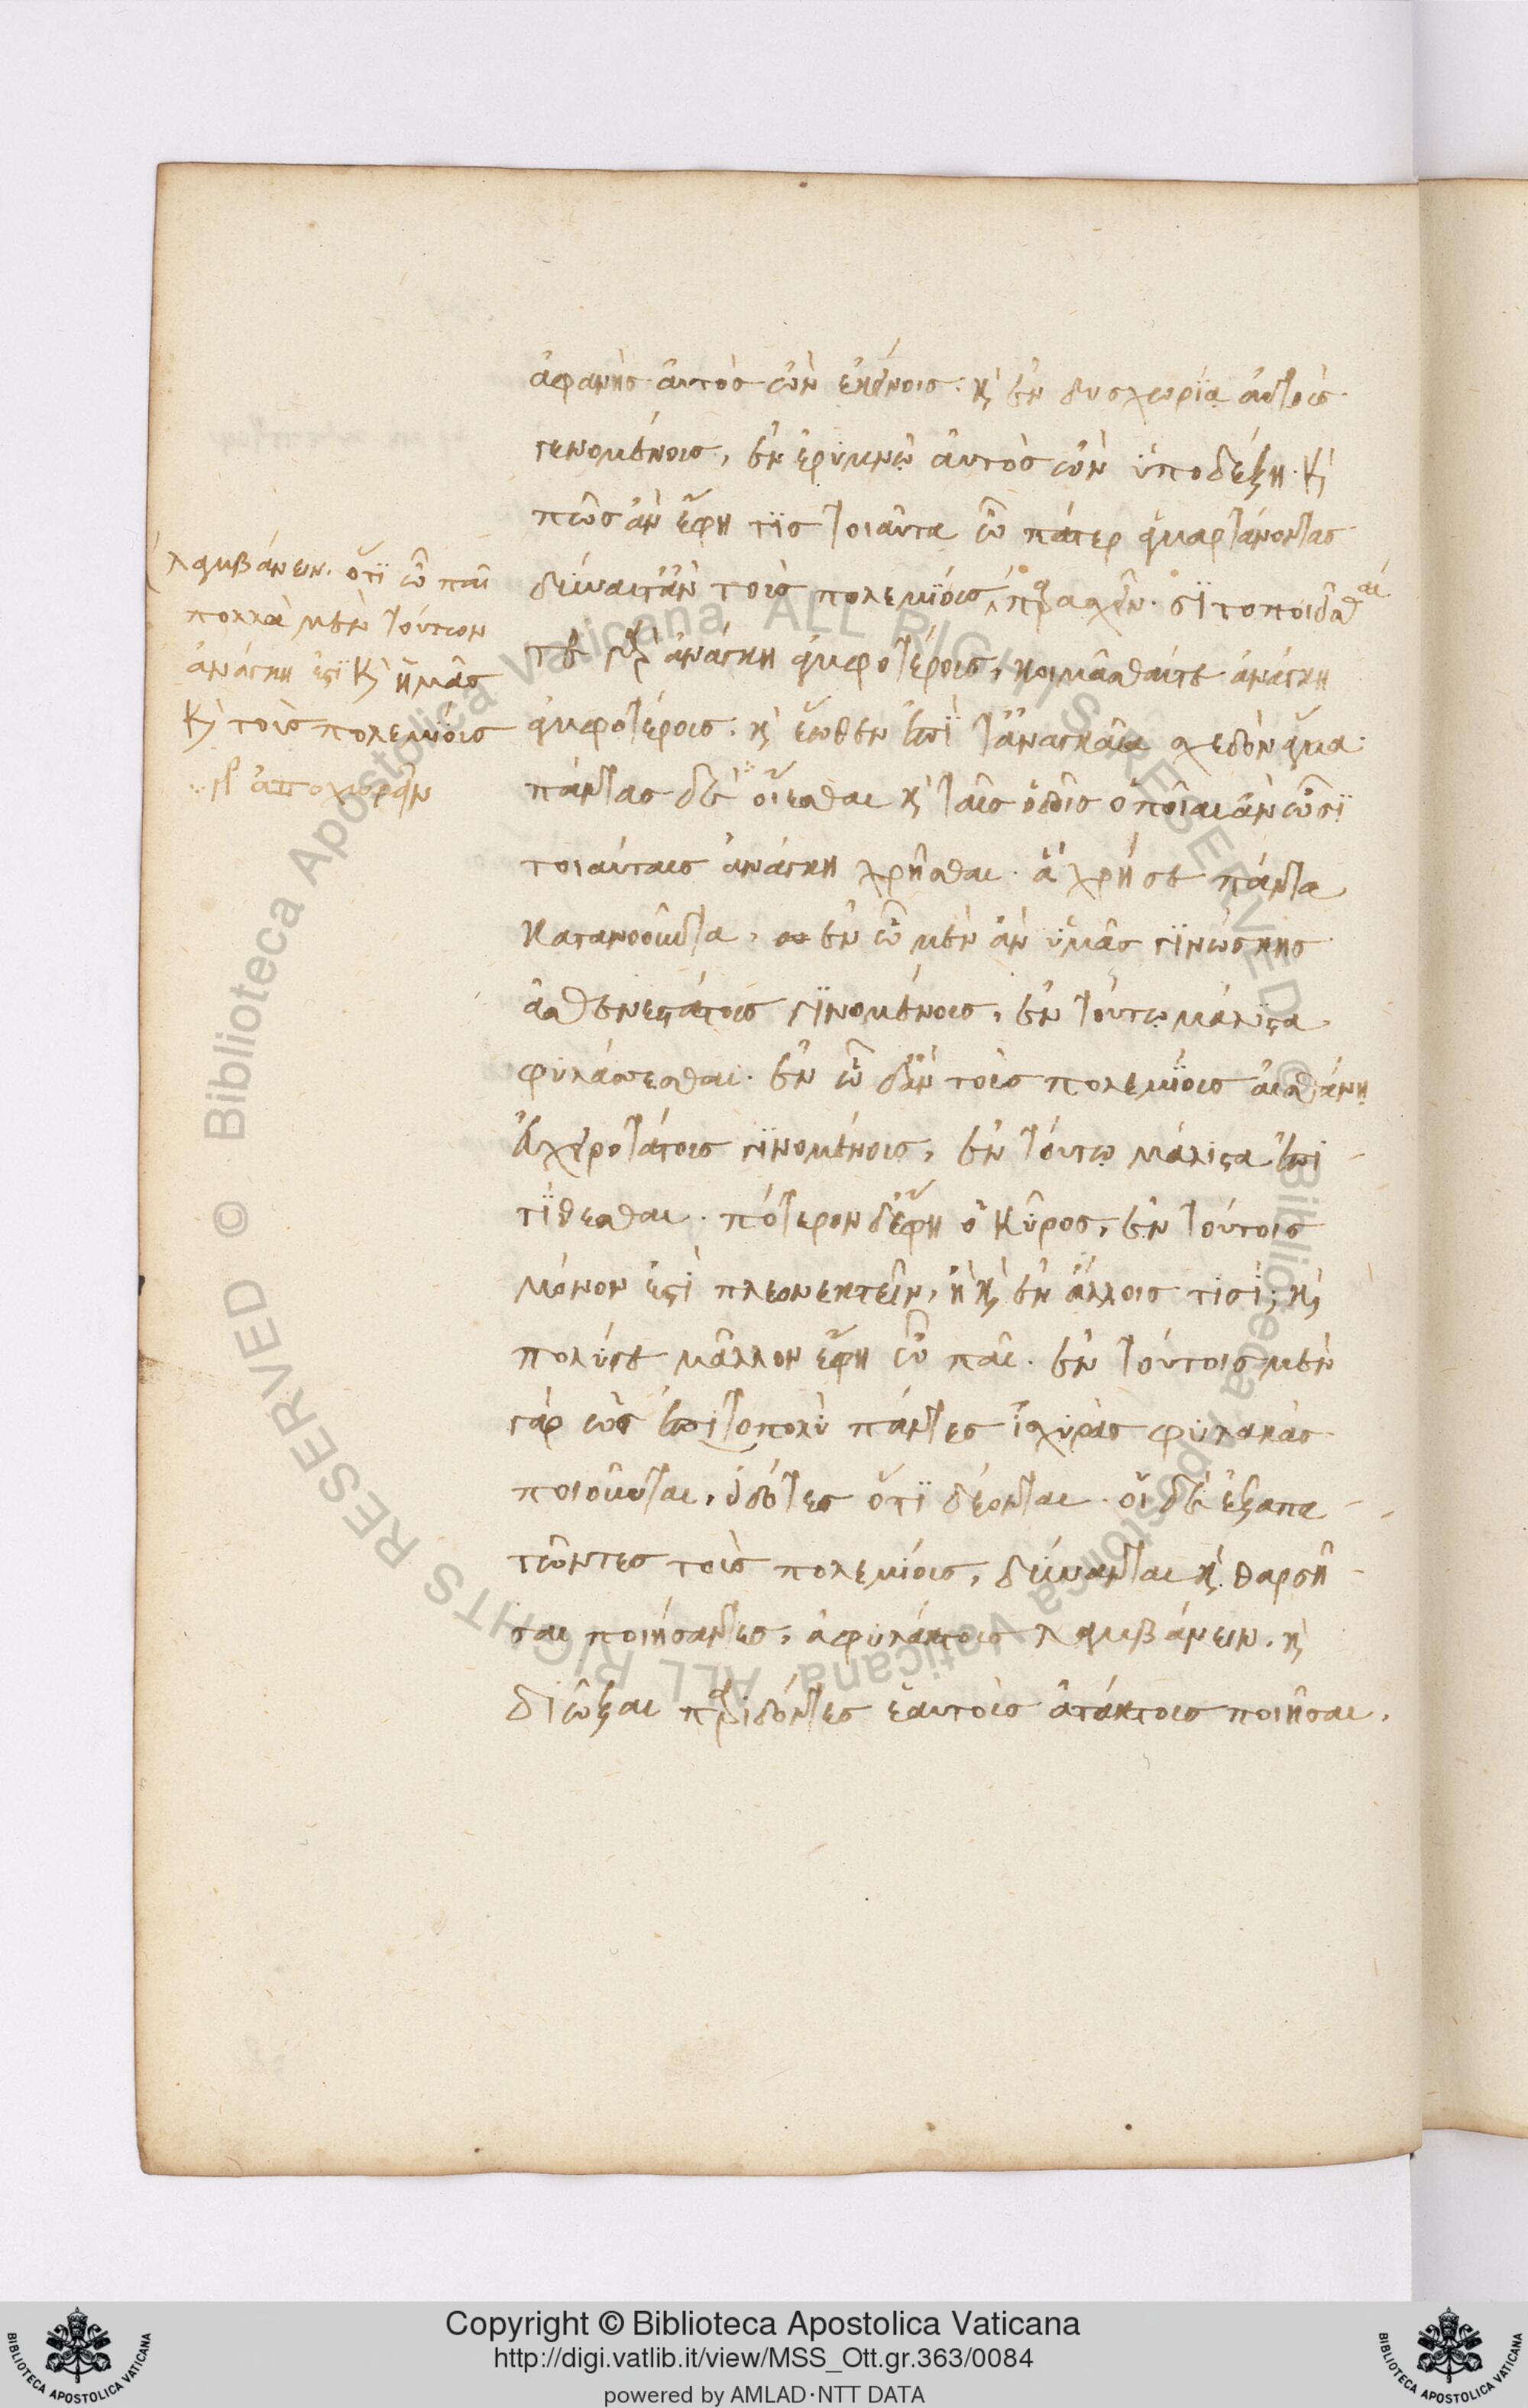 ἀφανὴς αὐτὸς ὢν ἐκείνοις· καὶ ἐν δυσχωρία αὐτοὺς
γενομένους, ἐν ἐρυμνῶ αὐτὸς ὢν ὑποδέξη. καὶ
πῶς ἂν ἔφη τὶς τοιαῦτα ὦ πάτερ ἁμαρτάνοντας
δύναιτ' ἂν τοὺς πολεμίους παρασχεῖν. σιτοποιεῖσθαί
τε γὰρ ἀνάγκη ἀμφοτέρους, κοιμᾶσθαί τε ἀνάγκη
ἀμφοτέρους· καὶ ἕωθεν ἐπὶ τἀναγκαῖα σχεδὸν ἅμα
πάντας δεῖ οἴεσθαι καὶ ταῖς ὁδοῖς ὁποῖαι ἂν ὦσι
τοιαύταις ἀνάγκη χρῆσθαι. ἃ χρή σε πάντα
κατανοοῦντα, ἐν ᾧ μὲν ἂν ὑμᾶς γινώσκης
ἀσθενεστάτους γινομένους, ἐν τούτω μάλιστα
φυλάττεσθαι. ἐν ᾧ δ' ἂν τοὺς πολεμίους αἰσθάνη
εὐχειροτάτους γινομένους, ἐν τούτω μάλιστα ἐπι-
τίθεσθαι. πότερον δ' ἔφη ὁ κῦρος, ἐν τούτοις
μόνον ἐστὶ πλεονεκτεῖν, ἢ καὶ ἐν ἄλλοις τισί; καὶ
πολύ γε μᾶλλον ἔφη ὦ παῖ. ἐν τούτοις μὲν
γὰρ ὡς ἐπιτοπολὺ πάντες ἰσχυρὰς φυλακὰς
ποιοῦνται, εἰδότες ὅτι δέονται. οἱ δὲ ἐξαπα-
τῶντες τοὺς πολεμίους, δύνανται καὶ θαρσῆ-
σαι ποιήσαντες, ἀφυλάκτους λαμβάνειν. καὶ
διῶξαι παραδόντες ἑαυτοὺς ἀτάκτους ποιῆσαι.
λαμβάνειν. ὅτι ὦ παῖ
πολλὰ μὲν τούτων
ἀνάγκη ἐστὶ καὶ ἡμᾶς
καὶ τοὺς πολεμίους
ἀποχωρεῖν
Copyright © Biblioteca Apostolica Vaticana
http://digi.vatlib.it/view/MSS_Ott.gr.363/0084
powered by AMLAD·NTT DATA
BIBLIOTECA APOSTOLICA VATICANA
BIBLIOTECA APOSTOLICA VATICANA
© Biblioteca Apostolica Vaticana ALL RIGHTS RESERVED
© Biblioteca Apostolica Vaticana ALL RIGHTS RESERVED